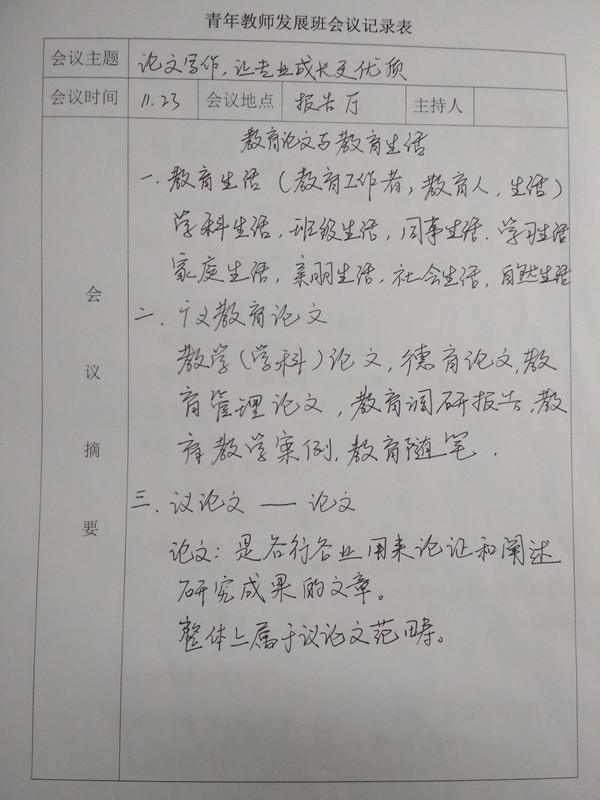 青年教师发展班会议记录表
会议主题 论文写作,让专业成长更优质
会议时间 11.23 会议地点 报告厅 主持人
会议摘要
教育论文与教育生活
一.教育生活(教育工作者,教育人,生活)
学科生活,班级生活,同事生活,学习生活
家庭生活,亲朋生活,社会生活,自然生活
二.广义教育论文
教学(学科)论文,德育论文,教
育管理论文,教育调研报告,教
育教学案例,教育随笔.
三.议论文——论文
论文:是各行各业用来论证和阐述
研究成果的文章。
整体上属于议论文范畴。